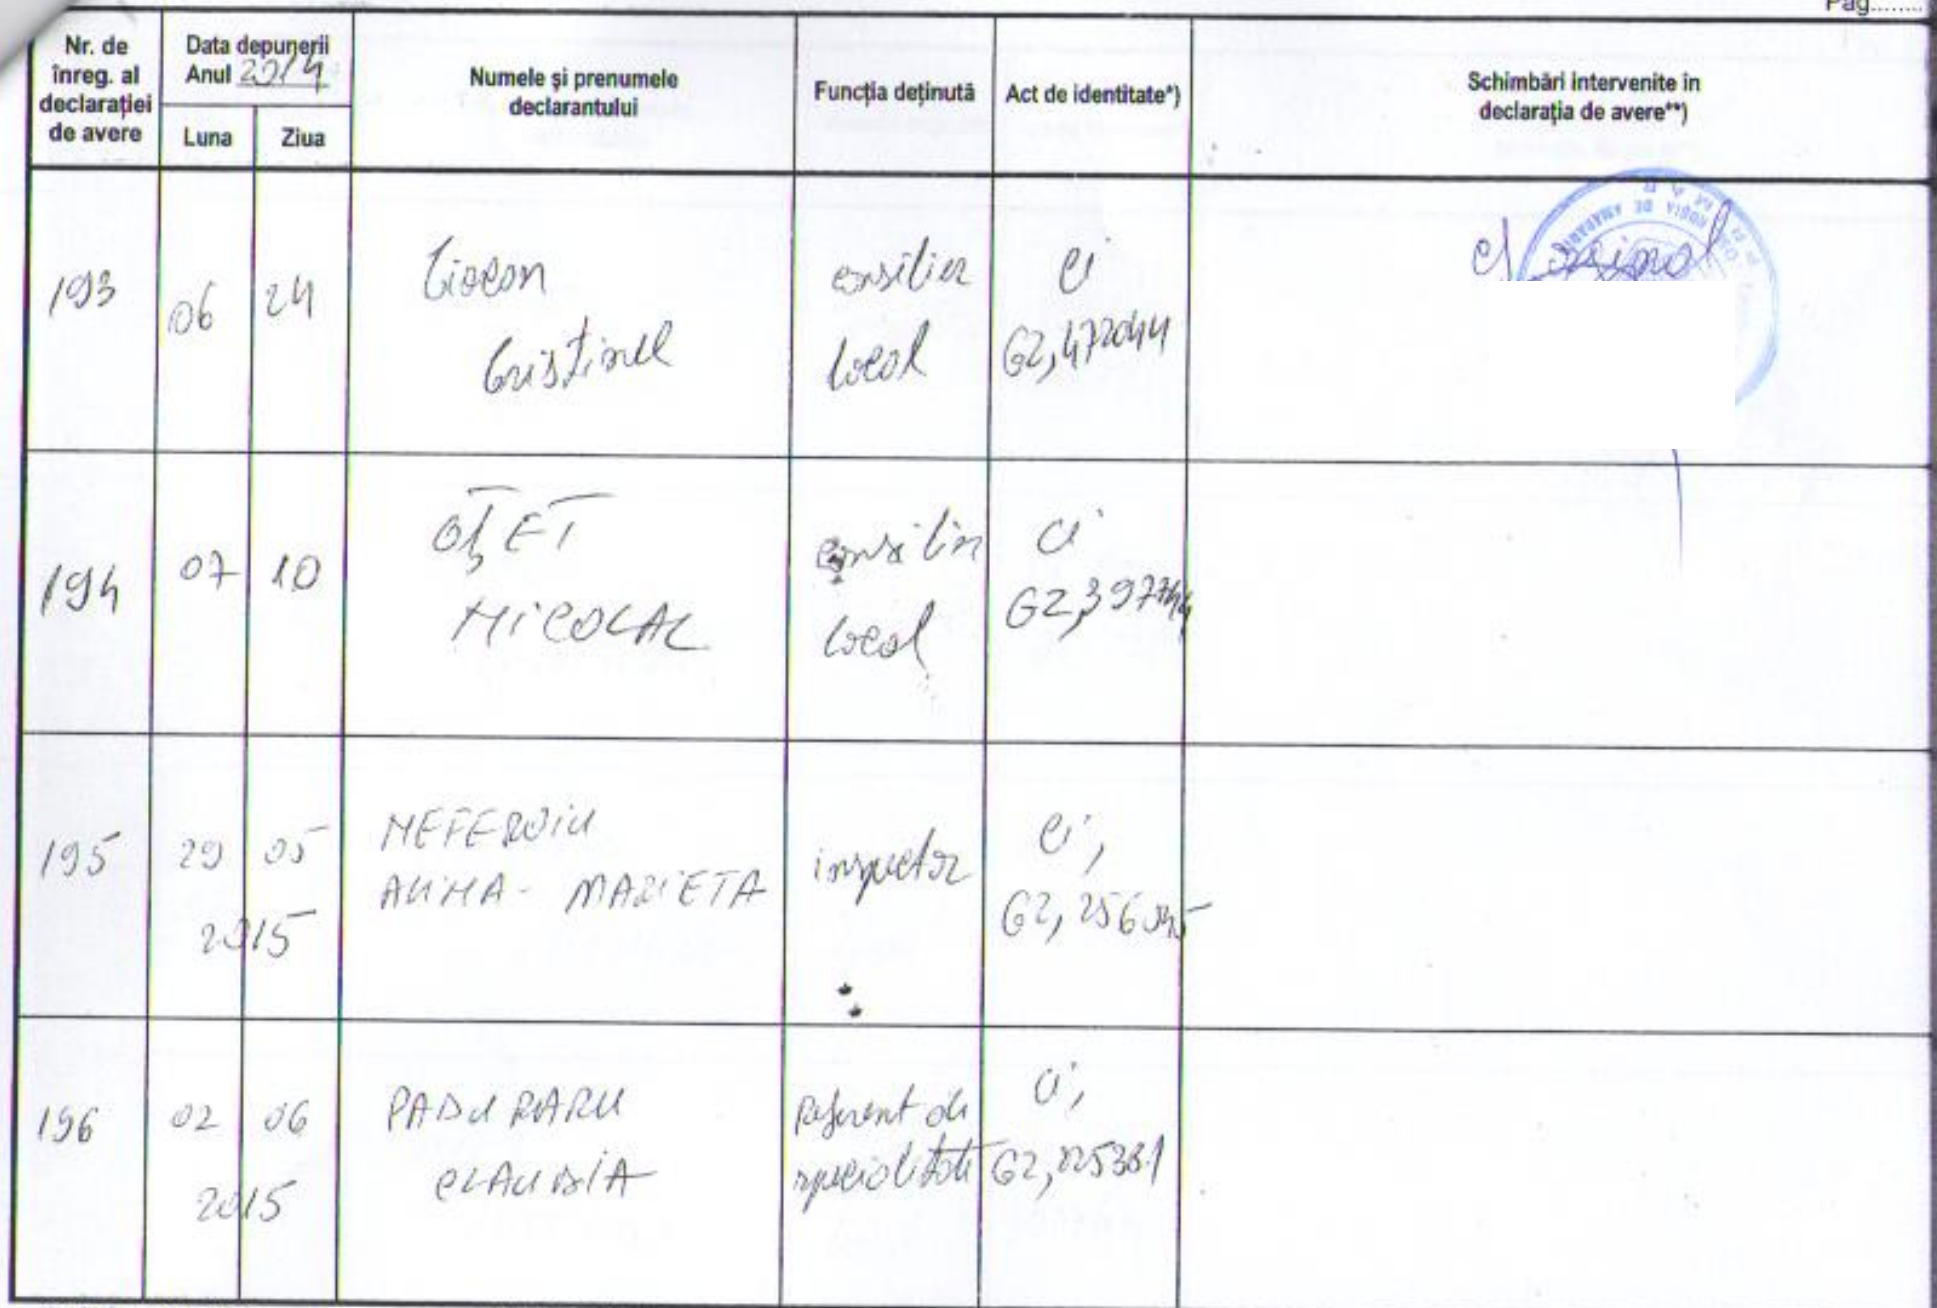 Pag........
Nr. de înreg. al declarației de avere
Data depunerii
Anul 2014
Luna
Ziua
Numele și prenumele declarantului
Funcția deținută
Act de identitate*)
Schimbări intervenite în declarația de avere**)
193
06
24
Cristinel
consilier
local
ci
GZ,472044
194
07
10
OȚET
NICOLAE
consilier
local
ci
GZ,397744
195
29
05
2015
NEFEROIU
ALINA- MARIETA
inspector
ci,
GZ,
196
02
06
2015
PADURARU
CLAUDIA
Referent de
specialitate
ci,
GZ,225381